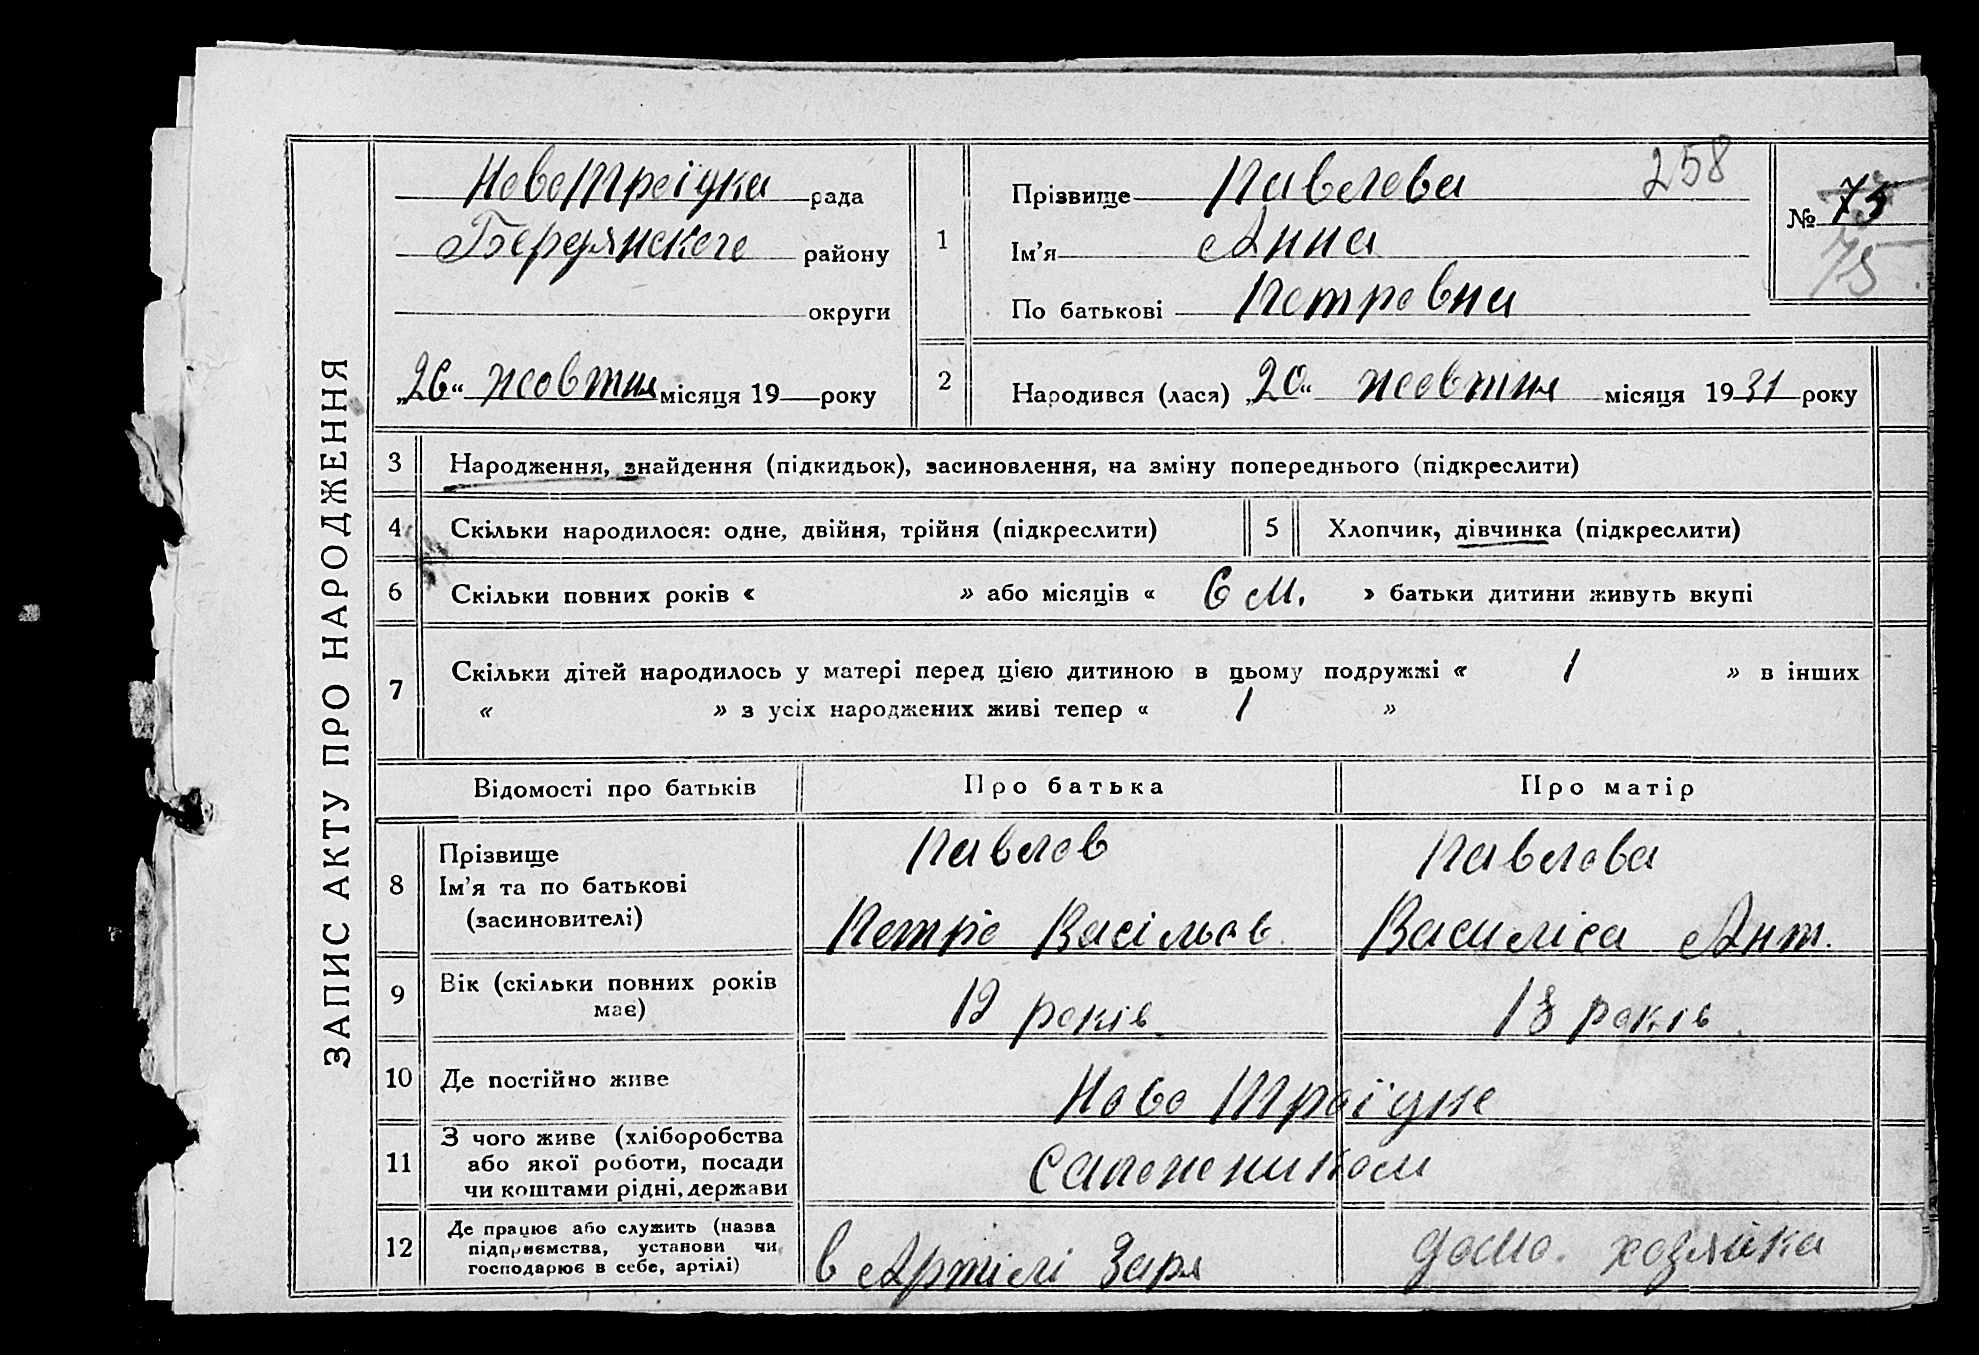 ЗАПИС АКТУ ПРО НАРОДЖЕННЯ
НовоТроїцка рада
Бердянского району
округи
„26“ жовтня місяця 19 року
1
Прізвище Павлова
258
Ім’я Анна
По батькові Петровна
№ 75
75
2
Народився (лася) „20“ жовтня місяця 1931 року
3 Народження, знайдення (підкидьок), засиновлення, на зміну попереднього (підкреслити)
4 Скільки народилося: одне, двійня, трійня (підкреслити)
5 Хлопчик, дівчинка (підкреслити)
6 Скільки повних років « » або місяців « 6 м. » батьки дитини живуть вкупі
7 Скільки дітей народилось у матері перед цією дитиною в цьому подружжі « 1 » в інших
« » з усіх народжених живі тепер « 1 »
Відомості про батьків Про батька Про матір
8
Прізвище
Ім’я та по батькові
(засиновителі)
Павлов
Петро Васільов.
Павлова
Василіса Ант.
9
Вік (скільки повних років
має)
19 років.
18 років.
10 Де постійно живе
Ново Троїцке
11
З чого живе (хліборобства
або якої роботи, посади
чи коштами рідні, держави
Сапожником
12
Де працює або служить (назва
підприємства, установи чи
господарює в себе, артілі)
в Артілі Заря
домо. хозяйка